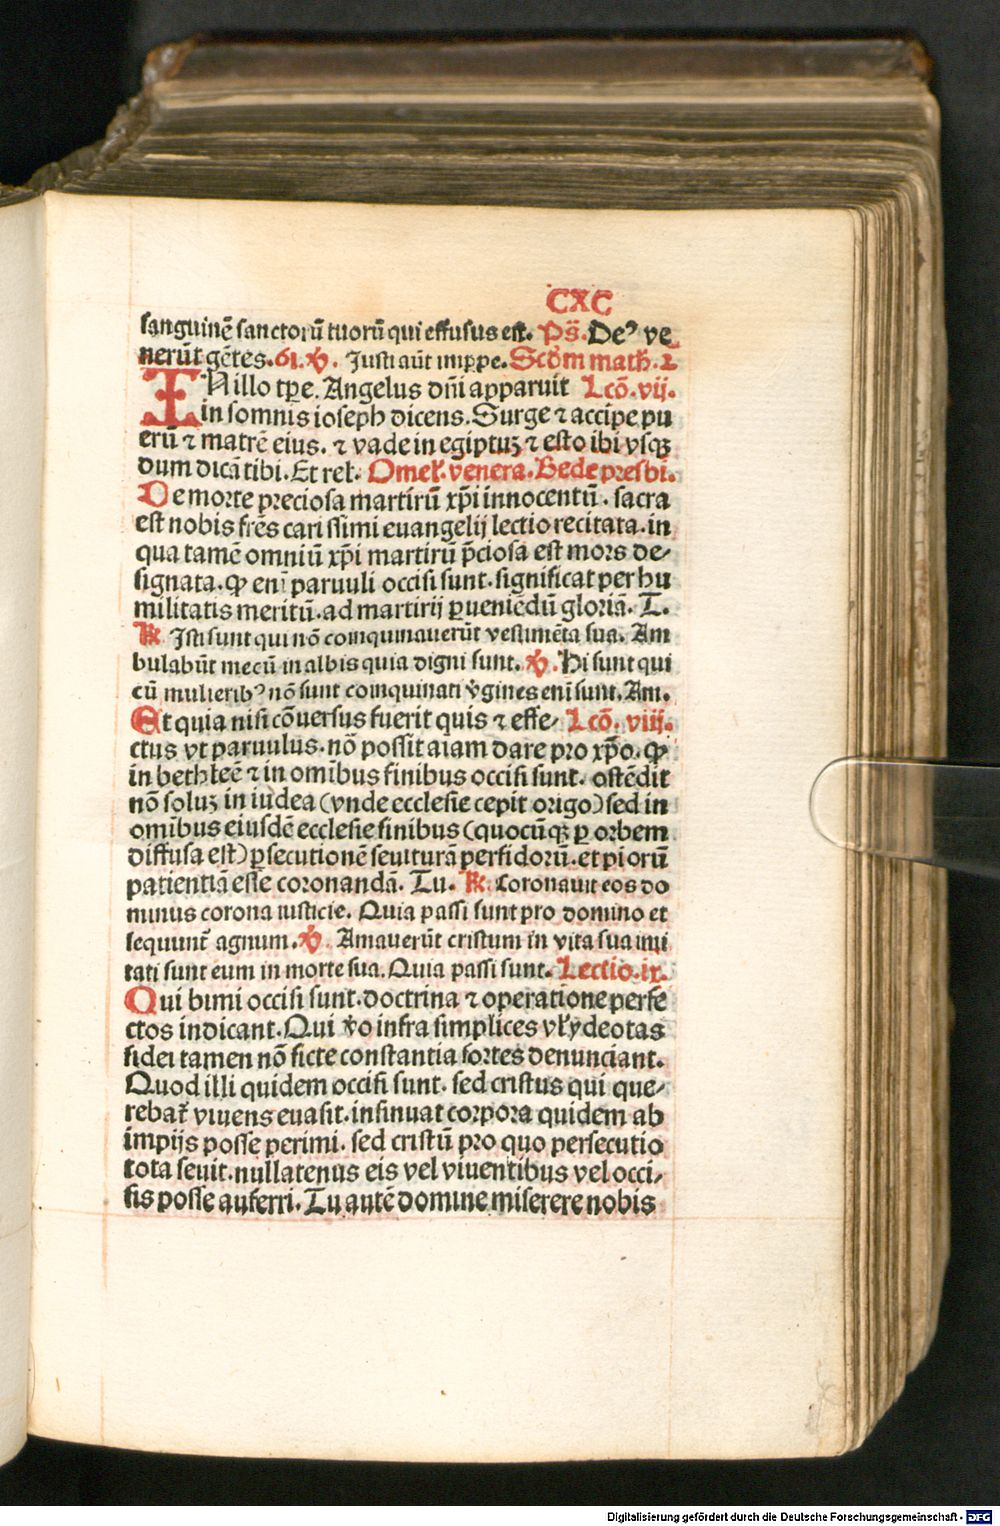 CXC
sanguinē sanctorū tuorū qui effusus est. Ps̄. De⁹ ve
nerūt gētes. 61. ℣. Justi aūt inꝑpe. Scd̄m math. 2
IN illo tꝑe. Angelus dn̄i apparuit Lcō. vij.
in somnis ioseph dicens. Surge ⁊ accipe pu
erū ⁊ matrē eius. ⁊ vade in egiptuꝫ ⁊ esto ibi vsqꝫ
dum dicā tibi. Et rel. Omel. venera. Bede presbi.
De morte preciosa martirū xp̄i innocentū. sacra
est nobis fr̄es carissimi euangelij lectio recitata. in
qua tamē omniū xp̄i martirū p̄ciosa est mors de-
signata. ꝙ eni̅ paruuli occisi sunt. significat per hu
militatis meritū. ad martirij ꝑueniēdū gloriā. T.
℟. Isti sunt qui nō coinquinauerūt vestimēta sua. Am
bulabūt mecū in albis quia digni sunt. ℣. Hi sunt qui
cū mulierib⁹ nō sunt coinquinati v̓gines eni̅ sunt. Am.
Et quia nisi cōuersus fuerit quis ⁊ effe- Lcō. viij.
ctus vt paruulus. nō possit aīam dare pro xp̄o. ꝙ
in bethleē ⁊ in omībus finibus occisi sunt. ostēdit
nō soluꝫ in iudea (vnde ecclesie cepit origo) sed in
omībus eiusdē ecclesie finibus (quocūqꝫ ꝑ orbem
diffusa est) ꝑsecutionē seuiturā perfidorū. et piorū
patientiā esse coronandā. Tu. ℟. Coronauit eos do
minus corona iusticie. Quia passi sunt pro domino et
sequunt̄ agnum. ℣. Amauerūt cristum in vita sua imi
tati sunt eum in morte sua. Quia passi sunt. Lectio. ix.
Qui bimi occisi sunt. doctrina ⁊ operatione perfe
ctos indicant. Qui v̓o infra simplices vl ydeotas
fidei tamen nō ficte constantia fortes denunciant.
Quod illi quidem occisi sunt. sed cristus qui que-
rebat̄ viuens euasit. insinuat corpora quidem ab
impijs posse perimi. sed cristū pro quo persecutio
tota seuit. nullatenus eis vel viuentibus vel occi-
sis posse auferri. Tu autē domine miserere nobis
Digitalisierung gefördert durch die Deutsche Forschungsgemeinschaft - DFG